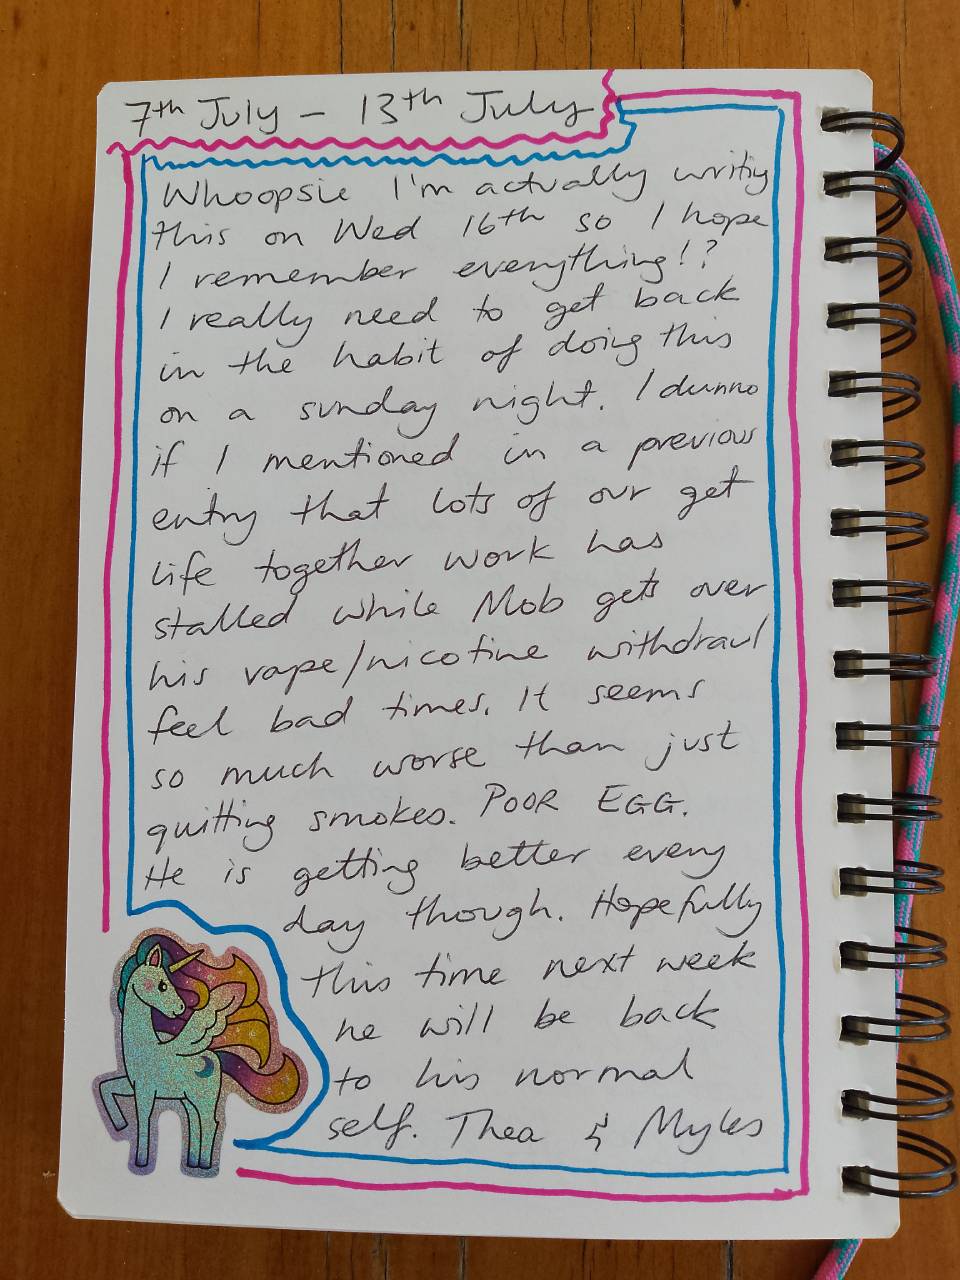 7th July - 13th July
Whoopsie I'm actually writing
this on Wed 16th so I hope
I remember everything!?
I really need to get back
in the habit of doing this
on a sunday night. I dunno
if I mentioned in a previous
entry that lots of our get
life together work has
stalled while Mob gets over
his vape/nicotine withdrawl
feel bad times. It seems
so much worse than just
quitting smokes. POOR EGG.
He is getting better every
day though. Hopefully
this time next week
he will be back
to his normal
self. Thea & Myles